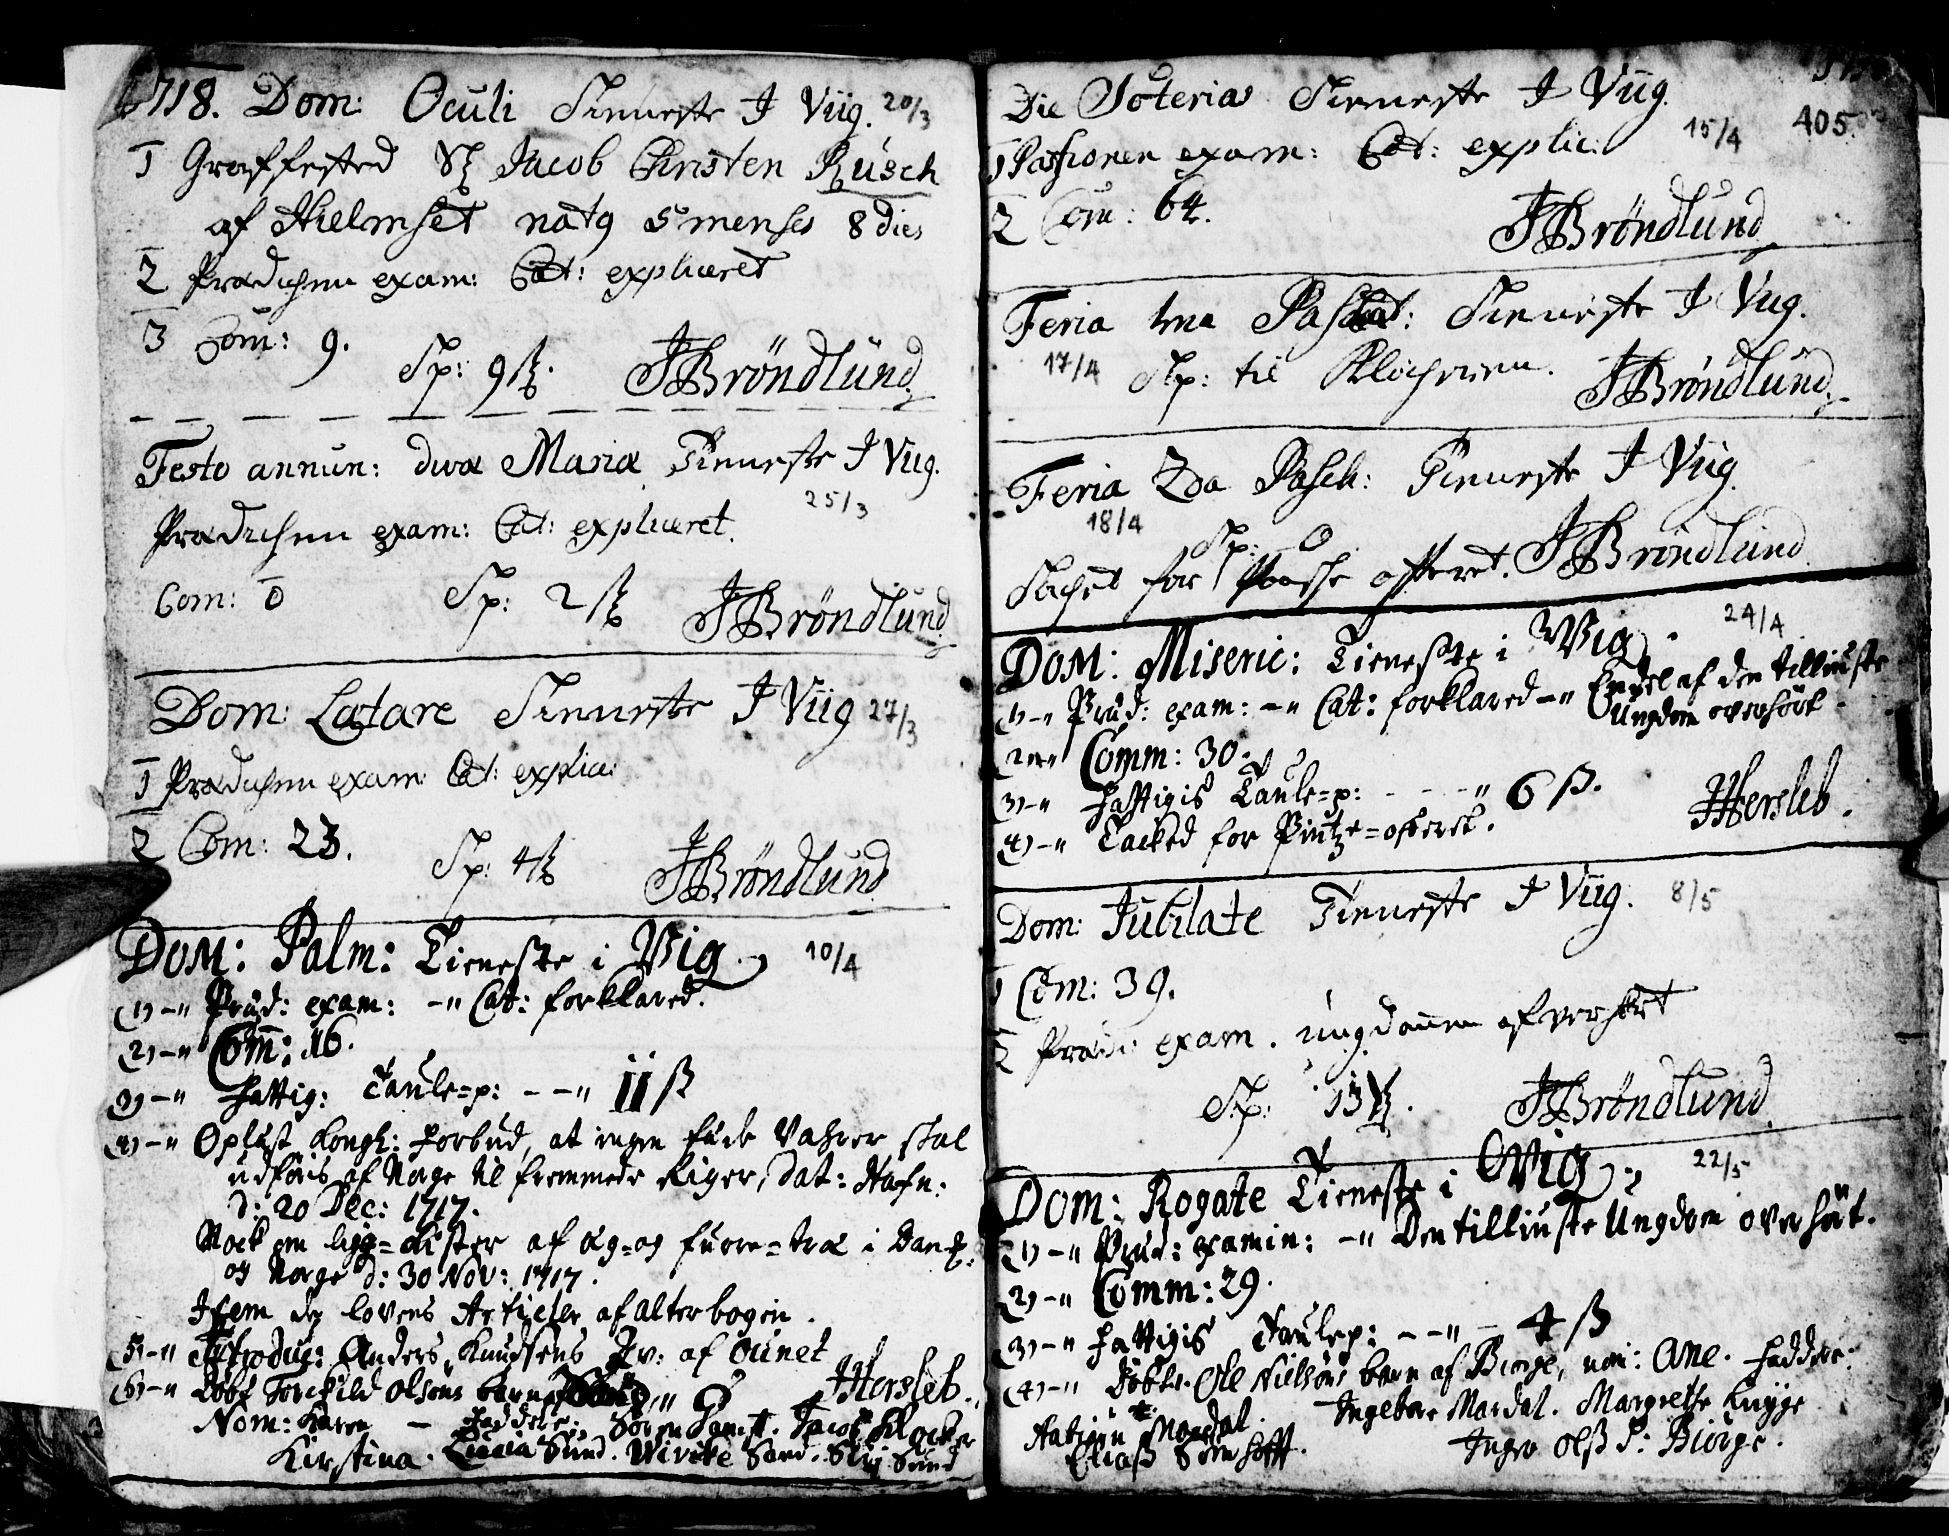 1718. Dom: Oculi Tieneste I Viig. 20/3
1 Graffested Jacob Christen Rusch
af Hielmset natg 5 menses 8 dies
2 Prædichen exam: Cat: expliceret
3 Com: 9.
Sp: 9 ß. JBröndlund
Festo annun: divæ Mariæ Tieneste I Viig.
25/3
Prædichen exam: Cat: expliceret.
Com: 0 Sp: 2 ß JBröndlund
Dom: Lætare Tieneste I Viig 27/3
1 Prædichen exam: Cat: explic:
2 Com: 23.
Sp: 4 ß JBröndlund
DOM: Palm: Tieneste i Vig. 10/4
(1) -" Præd: exam: -" Cat: forklared.
(2) -" Com: 16.
(3) -" Fattig: Taule=p: - -" 11 ß
(4) -" Oplæst Kongl: Forbud, at ingen skal
udføris af Norge til fremmede Riger, Dat: Hafn:
d: 20 Dec: 1717.
Nock om af og i Danm:
og Norge d: 30 Nov: 1717.
Item lovens Articler af alterbogen.
(5) -" Introduc: Anders Knudsens af Ounet
(6) -" Døbt Torchild Olsöns barn JHersleb.
Nom: Karen - Faddere: Sören Jacob Klocker
Kirstina. Sund. Wivike Sand. Sund
405.
Die Soterias Tieneste I Viig.
15/4
1 Passionen exam: Cat: explic:
2 Com: 64.
JBröndlund
Feria 1ma Paschat: Tieneste I Viig.
17/4 Sp: til Klocheren. JBröndlund
Feria 2da Pasch: Tieneste I Viig
18/4 Sp: 0
Tachet for Paasche offeret. JBröndlund
DOM: Miseric: Tieneste i Wig. 24/4
(1) -" Præd: exam: -" Cat: forklared -" Endel af den tilliuste
Ungdom overhört.
(2) -" Comm: 30.
(3) -" Fattigis Taule=p: - - -" 6 ß.
(4) -" Tacked for offeret. JHersleb.
Dom: Jubilate Tieneste I Viig. 8/5
1 Com: 39.
2 Præd: exam. ungdommen ofverhört
Sp: 13 ß. JBröndlund
DOM: Rogate Tieneste i Vig. 22/5
(1) -" Præd: examin: -" Den tilliuste Ungdom overhört.
(2) -" Comm: 29.
(3) -" Fattigis Taulep: - -" - 4 ß
(4) -" Döbt Ole Nielsöns barn af Biørge, nom: Ane. Faddere:
Mardal. Ingebor Mardal. Margrethe
Elias Ingeb Olß D: Biørge.